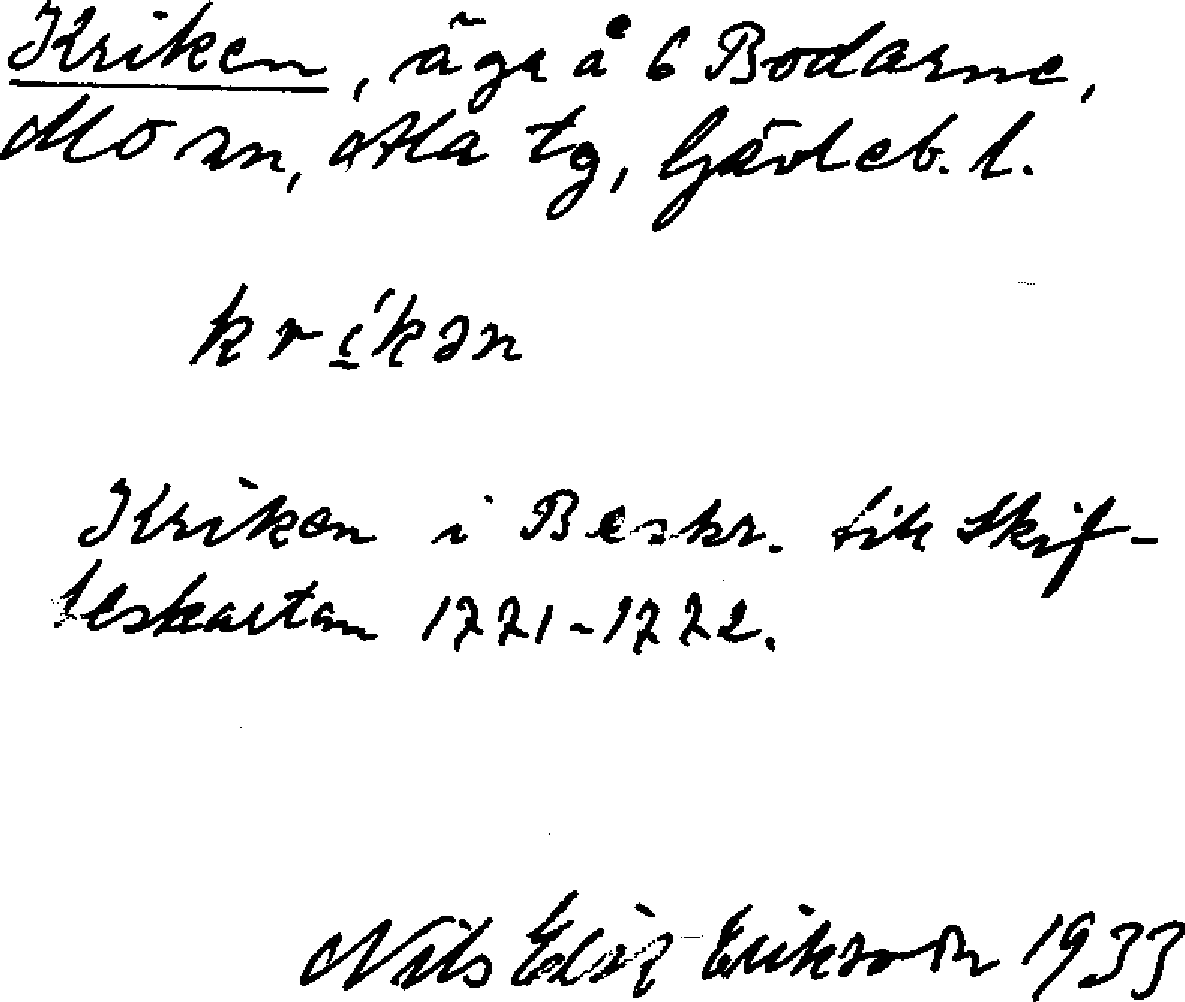 Kriken, äga å 6 Bodarne,
Mo sn, Ala tg, Gävleb. l.
kríkən
Kriken i Beskr. till Skif-
teskartan 1771-1772.
Nils Eriksson 1933